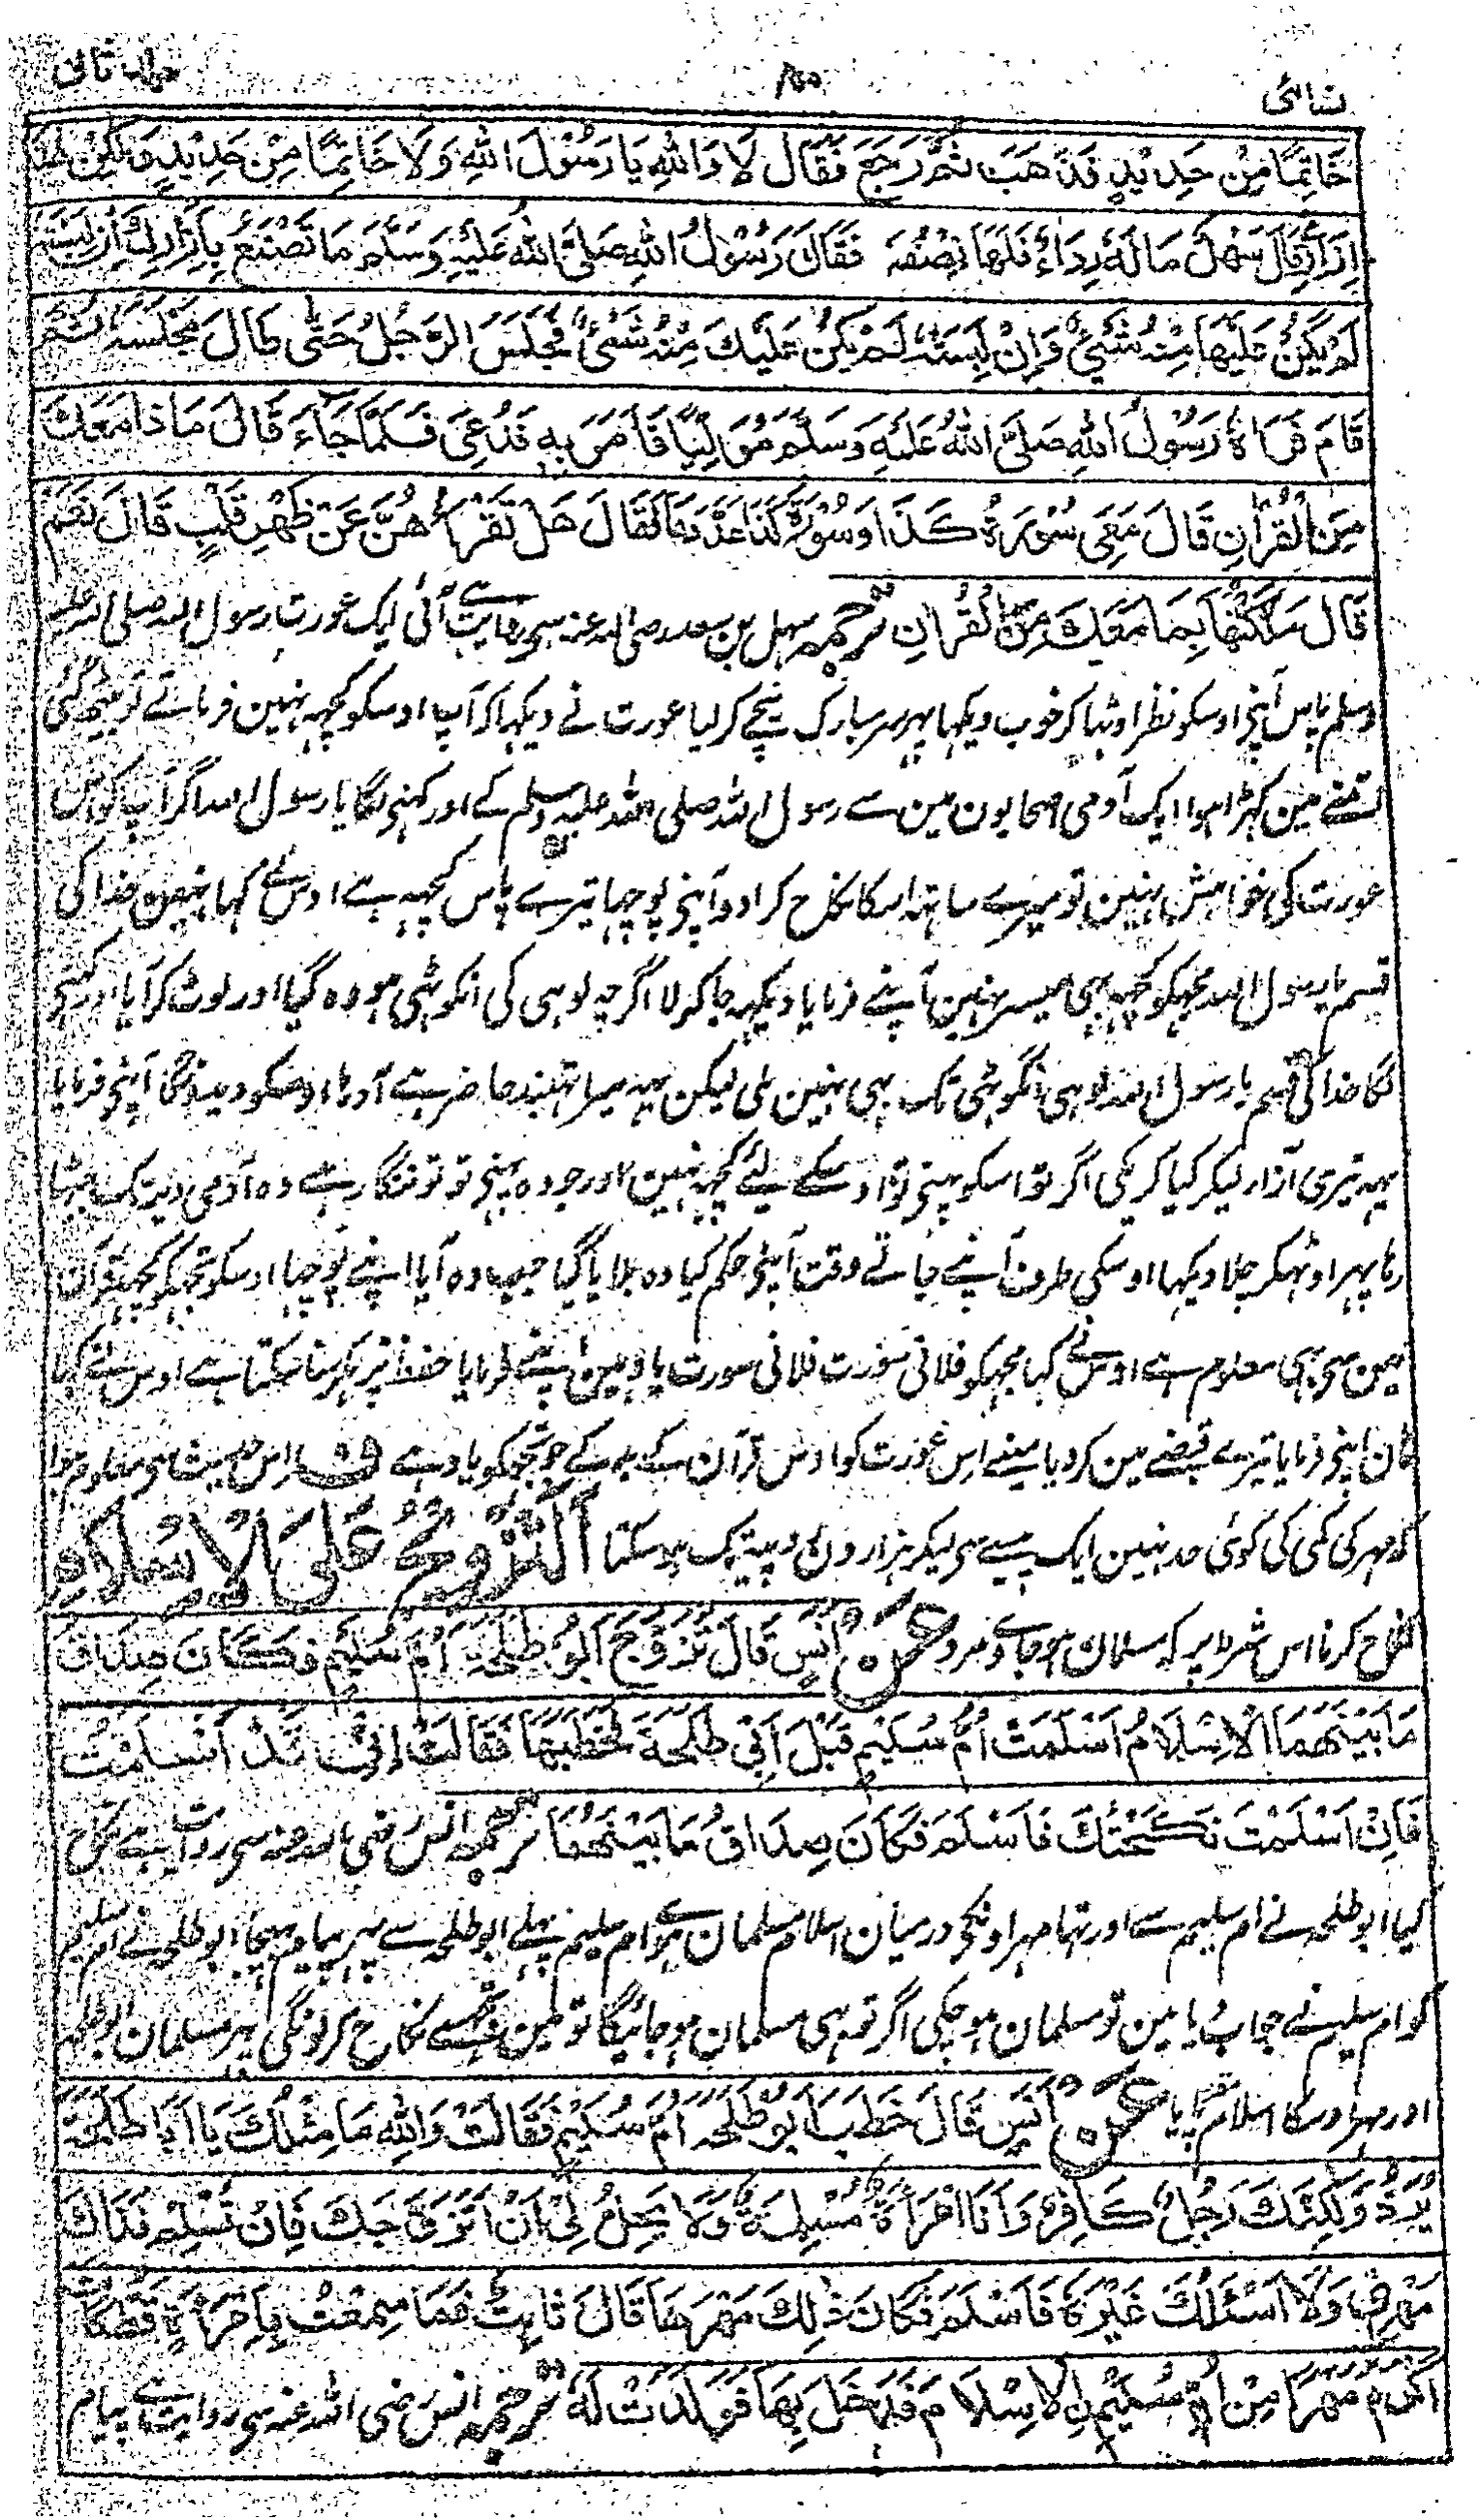 نسائی
جلد ثانی
خَاتِمًا مِنْ حَدِيْدٍ فَذَهَبَ ثُمَّ رَجَعَ فَقَالَ لَا وَاللهِ يَا رَسُوْلَ اللهِ وَلَا خَاتِمًا مِنْ حَدِيْدٍ وَلٰكِنْ هٰذَا
اِزَارِيْ قَالَ سَهْلٌ مَا لَهٗ رِدَاءٌ فَلَهَا نِصْفُهٗ فَقَالَ رَسُوْلُ اللهِ صَلَّى اللهُ عَلَيْهِ وَسَلَّمَ مَا تَصْنَعُ بِاِزَارِكَ اِنْ لَبِسْتَهٗ
لَمْ يَكُنْ عَلَيْهَا مِنْهُ شَيْءٌ وَاِنْ لَبِسَتْهُ لَمْ يَكُنْ عَلَيْكَ مِنْهُ شَيْءٌ فَجَلَسَ الرَّجُلُ حَتّٰى طَالَ مَجْلَسُهٗ ثُمَّ
قَامَ فَرَاٰهُ رَسُوْلُ اللهِ صَلَّى اللهُ عَلَيْهِ وَسَلَّمَ مُوَلِّيًا فَاَمَرَ بِهٖ فَدُعِيَ فَلَمَّا جَاءَ قَالَ مَاذَا مَعَكَ
مِنَ الْقُرْاٰنِ قَالَ مَعِيَ سُوْرَةُ كَذَا وَسُوْرَةُ كَذَا عَدَّدَهَا فَقَالَ هَلْ تَقْرَأُهُنَّ عَنْ ظَهْرِ قَلْبٍ قَالَ نَعَمْ
قَالَ مَلَّكْتُكَهَا بِمَا مَعَكَ مِنَ الْقُرْاٰنِ ترجمہ سہل بن سعد رضی اللہ عنہ سی روایت ہے آئی ایک عورت رسول اللہ صلی اللہ علیہ
وسلم پاس آپنے اوسکو نظر اوٹہا کر خوب دیکہا پہر سر مبارک نیچے کر لیا عورت نے دیکہا کہ آپ اوسکو کچہہ نہین فرماتے تو بیٹھ گئی
اتنے مین کہڑا ہوا ایک آدمی صحابون مین سے رسول اللہ صلی اللہ علیہ وسلم کے اور کہنے لگا یا رسول اللہ اگر آپ کو اس
عورت کی خواہش نہین تو میرے ساتہہ اسکا نکاح کرا دو آپنے پوچہا تیرے پاس کچہہ ہے اوسنے کہا نہین خدا کی
قسم یا رسول اللہ مجہکو کچہہ بہی میسر نہین آپنے فرمایا دیکہہ جا کر لا اگرچہ لوہی کی انگوٹہی ہو وہ گیا اور لوٹ کر آیا اور کہنے
لگا خدا کی قسم یا رسول اللہ لوہی انگوٹہی تک بہی نہین ملی لیکن یہہ میرا تہبند حاضر ہے آدہا اوسکو دیدونگا آپنے فرمایا
یہہ تیری ازار لیکر کیا کریگی اگر تو اسکو پہنے تو اوسکے لیے کچہہ نہین اور جو وہ پہنے تو تو ننگا رہے وہ آدمی دیر تک بیٹہا
رہا پہر اوٹہکر چلا دیکہا اوسکی طرف آپنے جاتے وقت آپنے حکم کیا وہ بلایا گیا جب وہ آیا آپنے پوچہا اوسکو تجہکو کچہہ قرآن
مین سی بہی معلوم ہے اوسنے کہا مجہکو فلانی سورت فلانی سورت یاد ہین آپنے فرمایا حفظ پڑہکر سنا سکتا ہے اوسنے کہا
ہان آپنے فرمایا تیرے قبضے مین کر دیا مینے اس عورت کو اوس قرآن کے بدلے جو تجہکو یاد ہے ف اس حدیث سی معلوم ہوا
کہ مہر کی کمی کی کوئی حد نہین ایک پیسے سی لیکر ہزارون روپیہ تک ہو سکتا اَلتَّزْوِيْجُ عَلَى الْاِسْلَامِ
نکاح کرنا اس شرط پر کہ مسلمان ہو جاے مرد عَنْ اَنَسٍ قَالَ تَزَوَّجَ اَبُوْ طَلْحَةَ اُمَّ سُلَيْمٍ فَكَانَ صِدَاقُ
مَا بَيْنَهُمَا الْاِسْلَامُ اَسْلَمَتْ اُمُّ سُلَيْمٍ قَبْلَ اَبِيْ طَلْحَةَ فَخَطَبَهَا فَقَالَتْ اِنِّيْ قَدْ اَسْلَمْتُ
فَاِنْ اَسْلَمْتَ نَكَحْتُكَ فَاَسْلَمَ فَكَانَ صِدَاقُ مَا بَيْنَهُمَا ترجمہ انس رضی اللہ عنہ سی روایت ہے نکاح
کیا ابو طلحہ نے ام سلیم سے اور تہا مہر اونکے درمیان اسلام مسلمان ہوے ام سلیم پہلے ابو طلحہ سے پہر پیام بہیجا ابو طلحہ نے ام سلیم
کو ام سلیم نے جواب دیا مین تو مسلمان ہو چکی اگر تو بہی مسلمان ہو جائیگا تو مین تجہسے نکاح کرونگی پہر مسلمان ابو طلحہ
اور مہر اوسکا اسلام پایا عَنْ اَنَسٍ قَالَ خَطَبَ اَبُوْ طَلْحَةَ اُمَّ سُلَيْمٍ فَقَالَتْ وَاللهِ مَا مِثْلُكَ يَا اَبَا طَلْحَةَ
يُرَدُّ وَلٰكِنَّكَ رَجُلٌ كَافِرٌ وَاَنَا امْرَاَةٌ مُسْلِمَةٌ وَلَا يَحِلُّ لِيْ اَنْ اَتَزَوَّجَكَ فَاِنْ تُسْلِمْ فَذَاكَ
مَهْرِيْ وَلَا اَسْئَلُكَ غَيْرَهٗ فَاَسْلَمَ فَكَانَ ذٰلِكَ مَهْرَهَا قَالَ ثَابِتٌ فَمَا سَمِعْتُ بِامْرَاَةٍ قَطُّ كَانَتْ
اَكْرَمَ مَهْرًا مِنْ اُمِّ سُلَيْمٍ اَلْاِسْلَامَ فَدَخَلَ بِهَا فَوَلَدَتْ لَهٗ ترجمہ انس رضی اللہ عنہ سی روایت ہے پیام